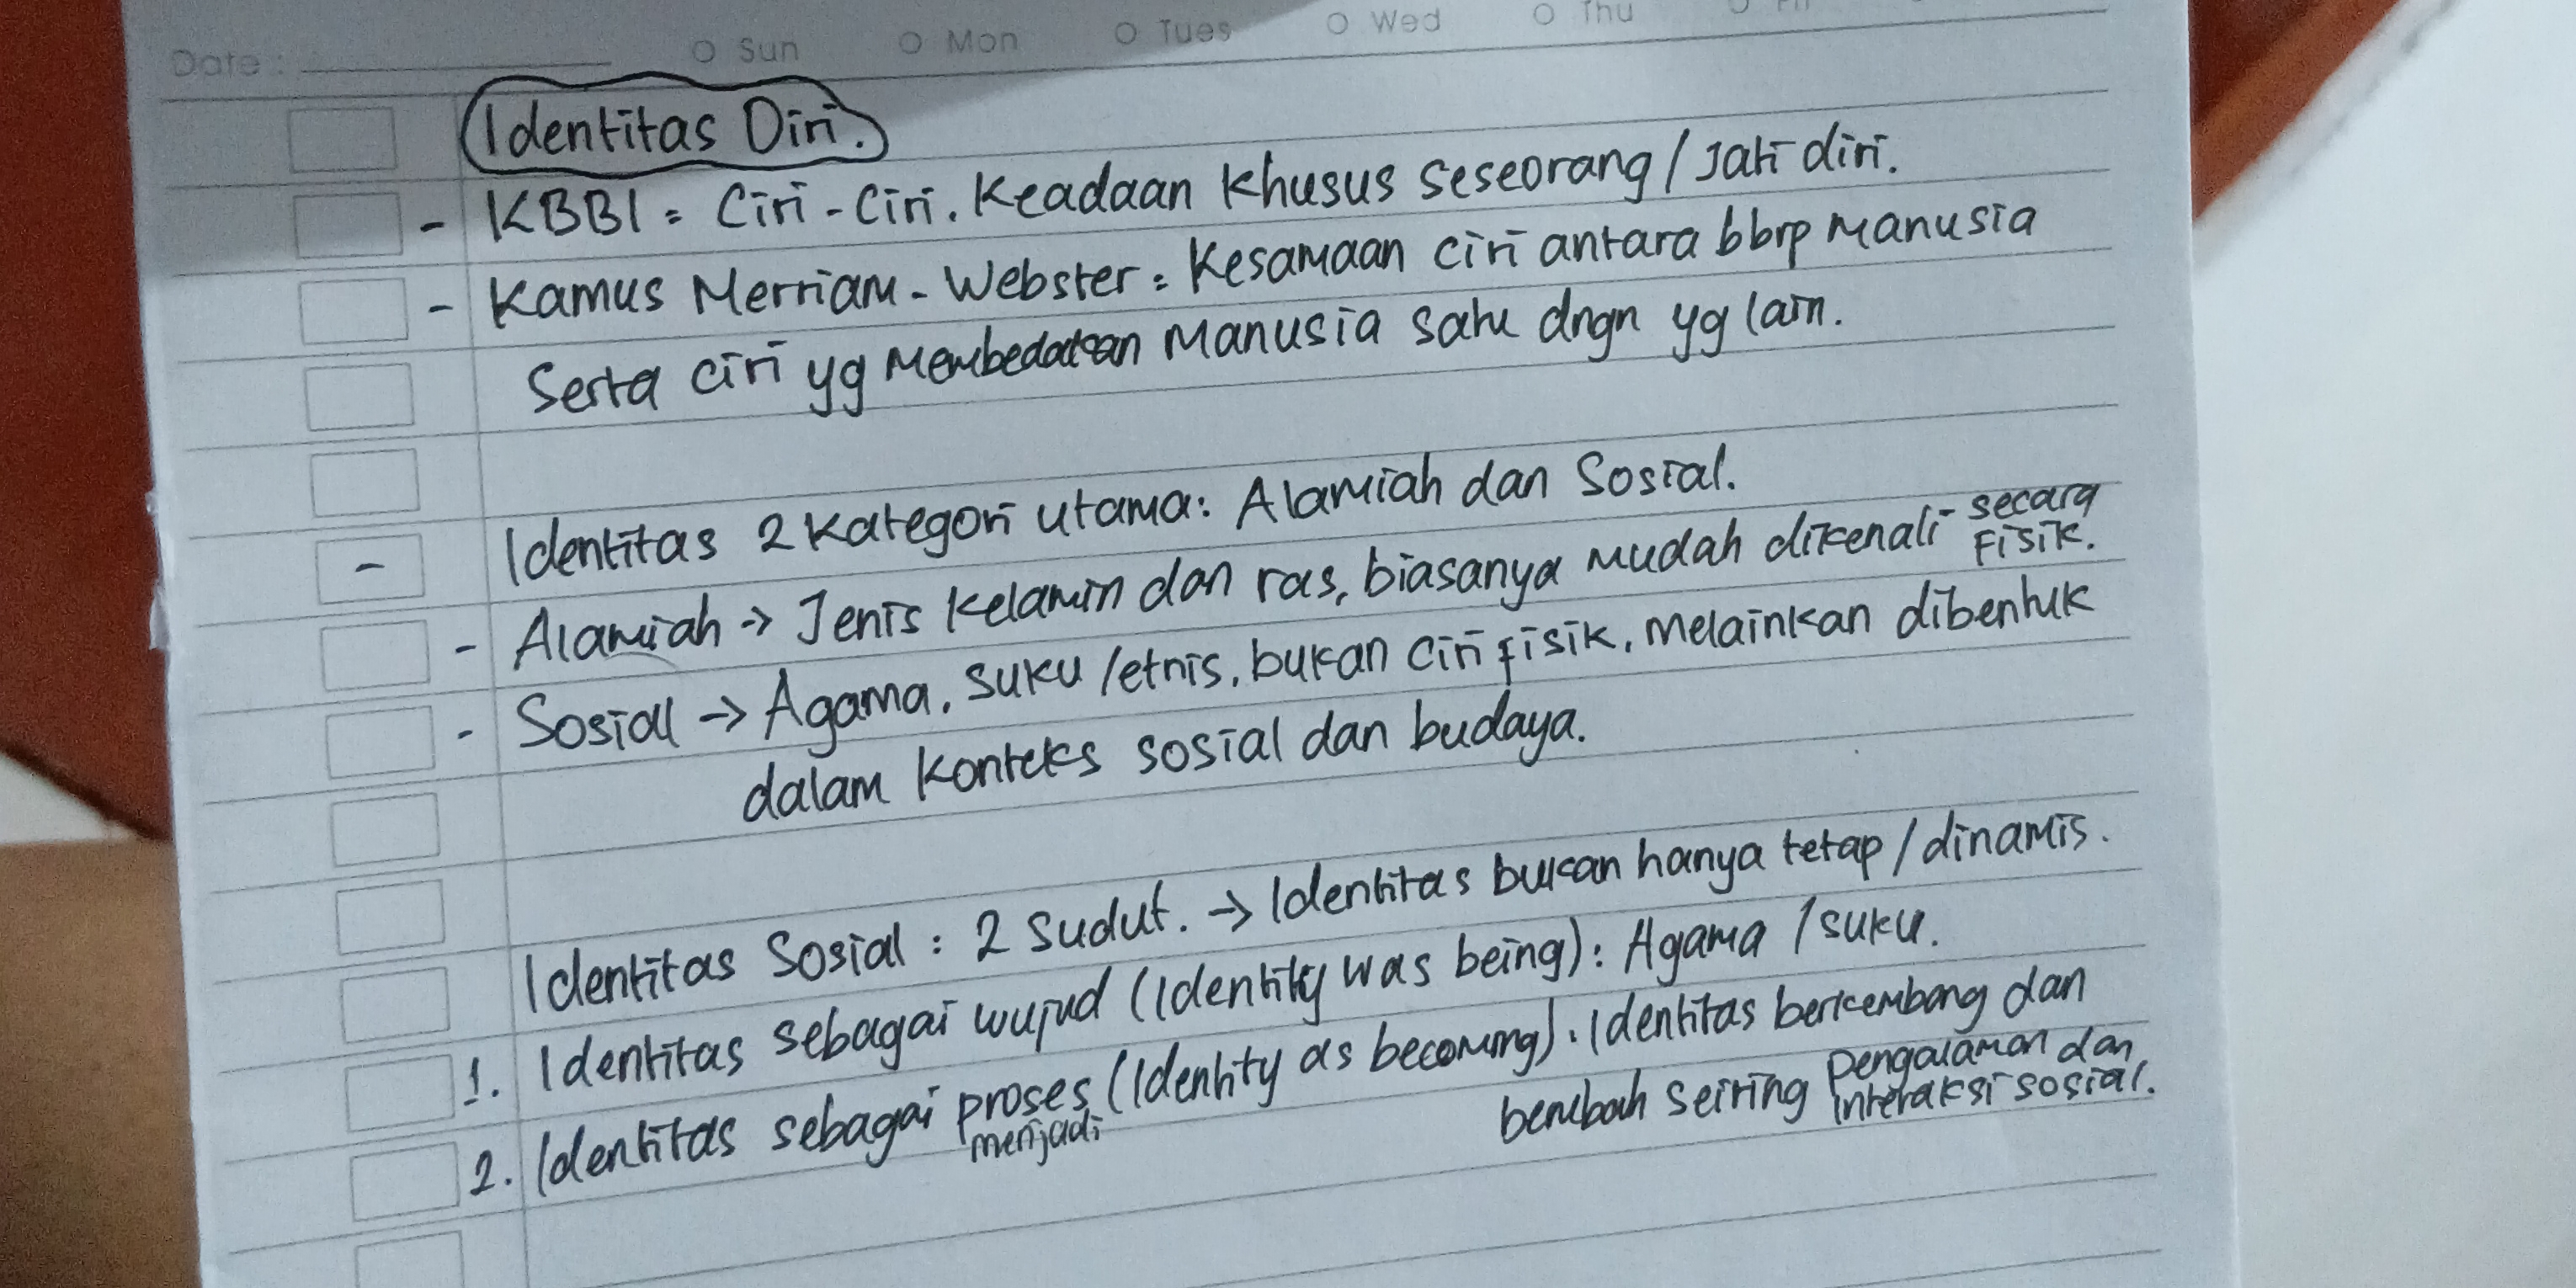 Date : O Sun O Mon O Tues O Wed O Thu
Identitas Diri.
- KBBI = Ciri-Ciri. Keadaan khusus seseorang / Jati diri.
- Kamus Merriam-Webster = Kesamaan ciri antara bbrp manusia
Serta ciri yg membedakan manusia satu dngn yg lain.
- Identitas 2 kategori utama: Alamiah dan Sosial.
- Alamiah → Jenis kelamin dan ras, biasanya mudah dikenali secara fisik.
- Sosial → Agama, suku / etnis, bukan ciri fisik, melainkan dibentuk
dalam konteks sosial dan budaya.
Identitas Sosial : 2 sudut. → Identitas bukan hanya tetap / dinamis.
1. Identitas sebagai wujud (Identity was being) : Agama / suku.
2. Identitas sebagai proses menjadi (Identity as becoming). Identitas berkembang dan
berubah seiring pengalaman dan interaksi sosial.